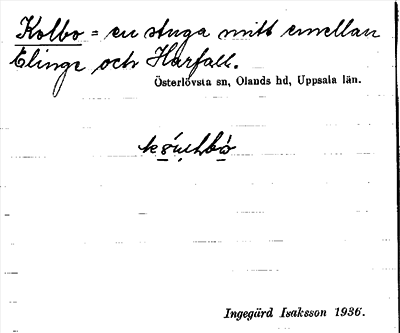 Kolbo = en stuga mitt emellan
Elinge och Harfall.
Österlövsta sn, Olands hd, Uppsala län.
Ingegärd Isaksson 1936.